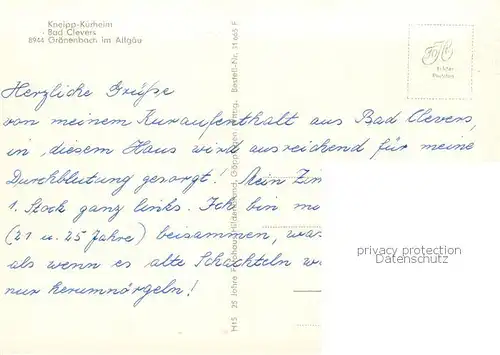 Kneipp-Kurheim
Bad Clevers
8944 Grönenbach im Allgäu
Herzliche Grüße
von meinem Kuraufenthalt aus Bad Clevers,
in diesem Haus wird ausreichend für meine
Durchblutung gesorgt! Mein Zim
1. Stock ganz links. Ich bin
(21 u. 25 Jahre) beisammen, was
als wenn es alte Schachteln
nur herumnörgeln!
Bestell-Nr. 11 665 F
H±5 25 Jahre Fotohaus Hildenbrand, Göppingen
Echte
privacy protection
Datenschutz